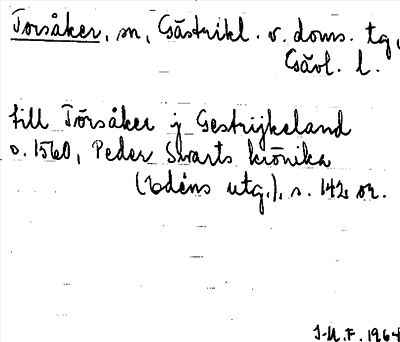 Torsåker, sn, Gästrikl. v. doms. tg,
Gävl. l.
till Törsåker j Gestrijkeland
o. 1560, Peder Swarts krönika
(Edéns utg.), s. 142 m.
J-M.F. 1964